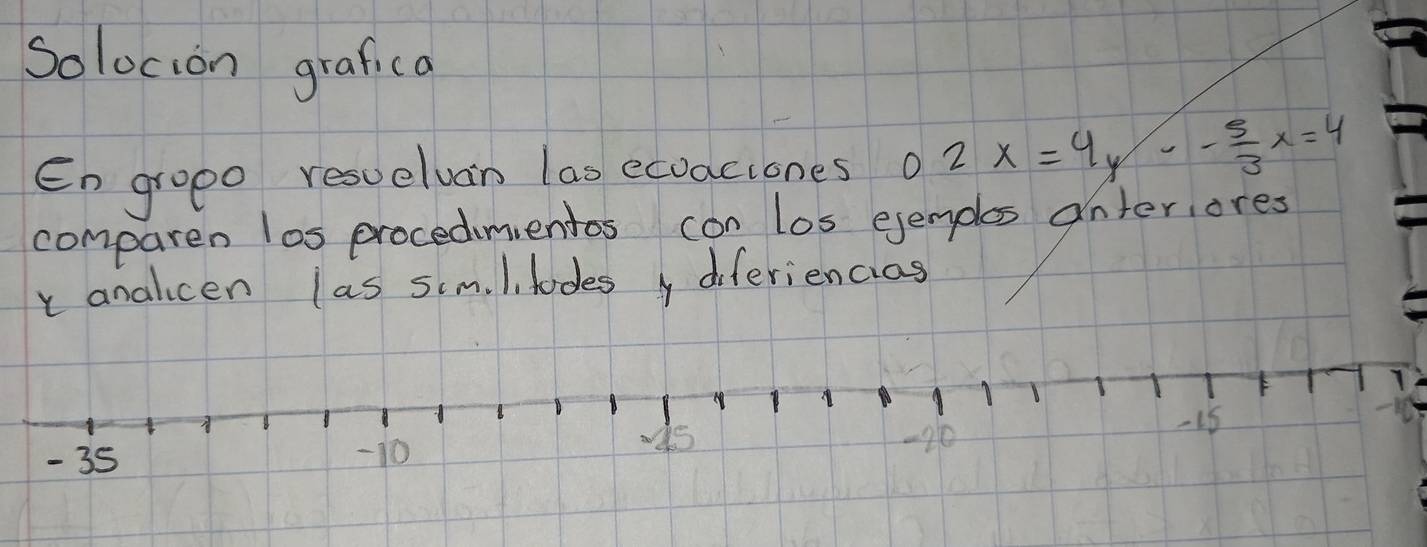 Solución grafica
En grupo resuelvan las ecuaciones 0 2 x = 4 y - - 5/3 x = 4
comparen los procedimientos con los ejemplos anteriores
y analicen las similitudes y diferiencias
-35 -10 -15 -20 -15 -10